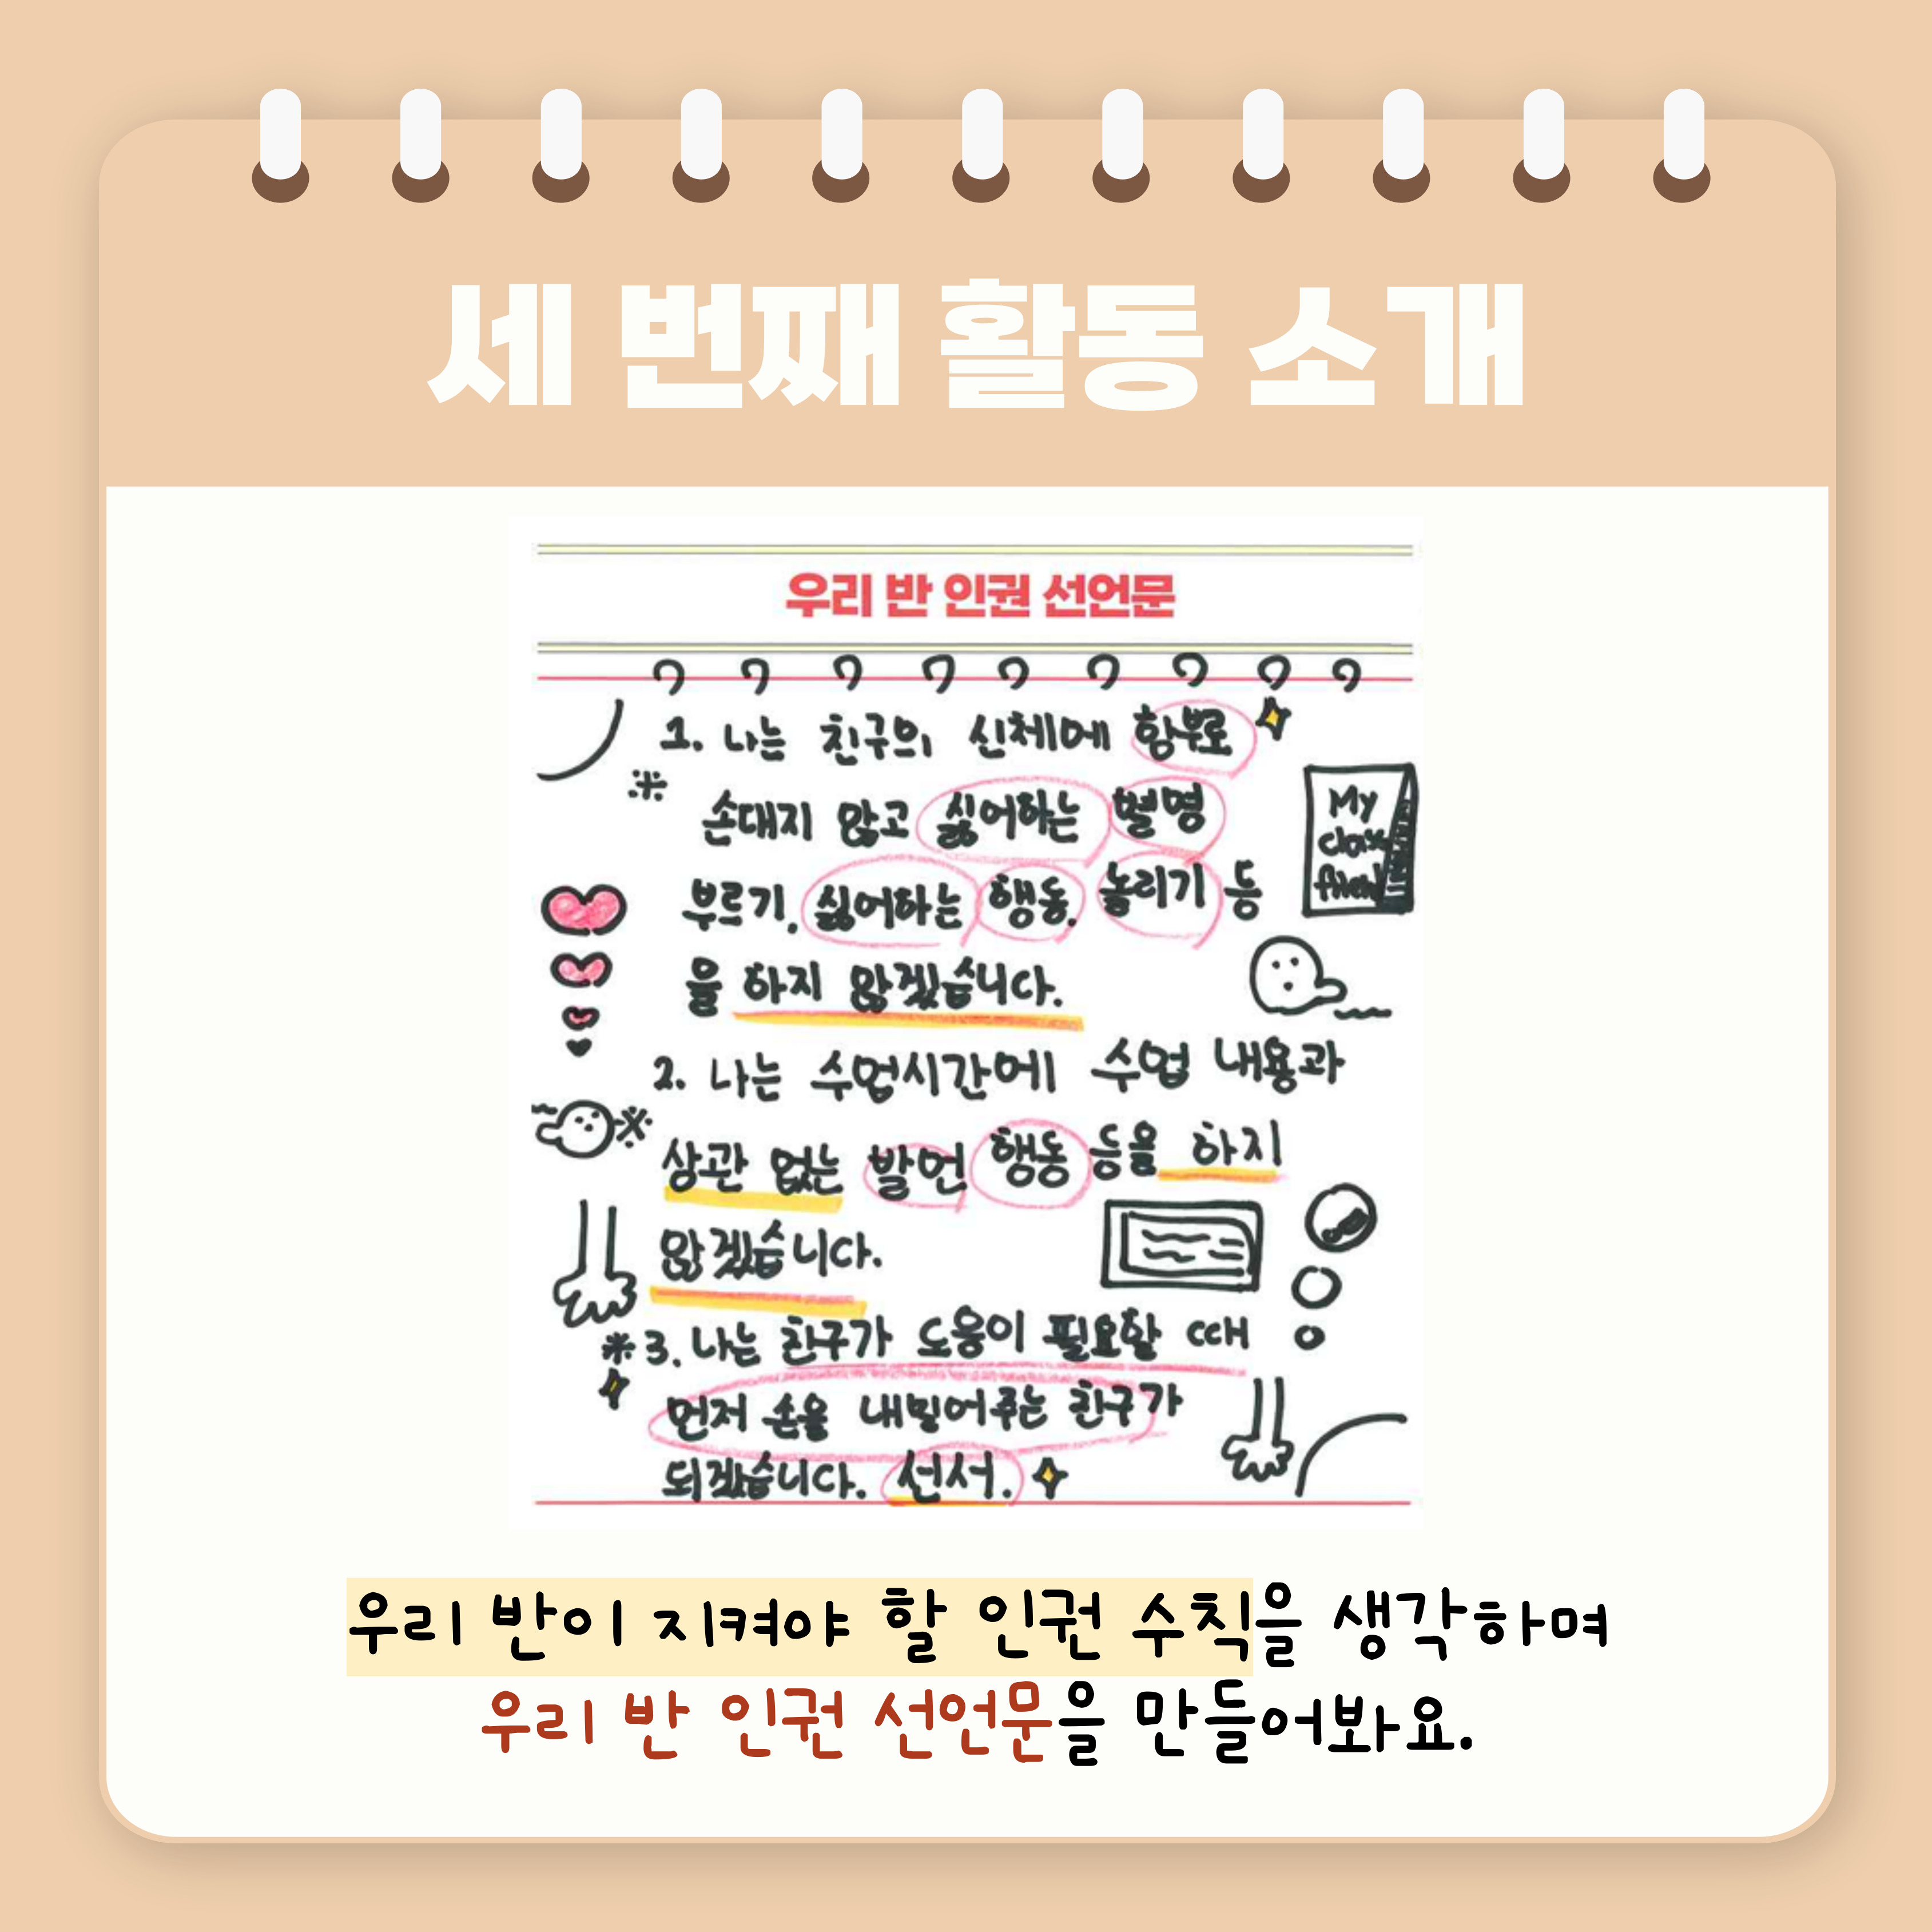 세 번째 활동 소개
우리 반 인권 선언문
1. 나는 친구의 신체에 함부로
손대지 않고 싫어하는 별명
부르기, 싫어하는 행동, 놀리기 등
을 하지 않겠습니다.
My
class
friend
2. 나는 수업시간에 수업 내용과
상관 없는 발언 행동 등을 하지
않겠습니다.
※3. 나는 친구가 도움이 필요할 때
먼저 손을 내밀어주는 친구가
되겠습니다. 선서.
우리 반이 지켜야 할 인권 수칙을 생각하며
우리 반 인권 선언문을 만들어봐요.